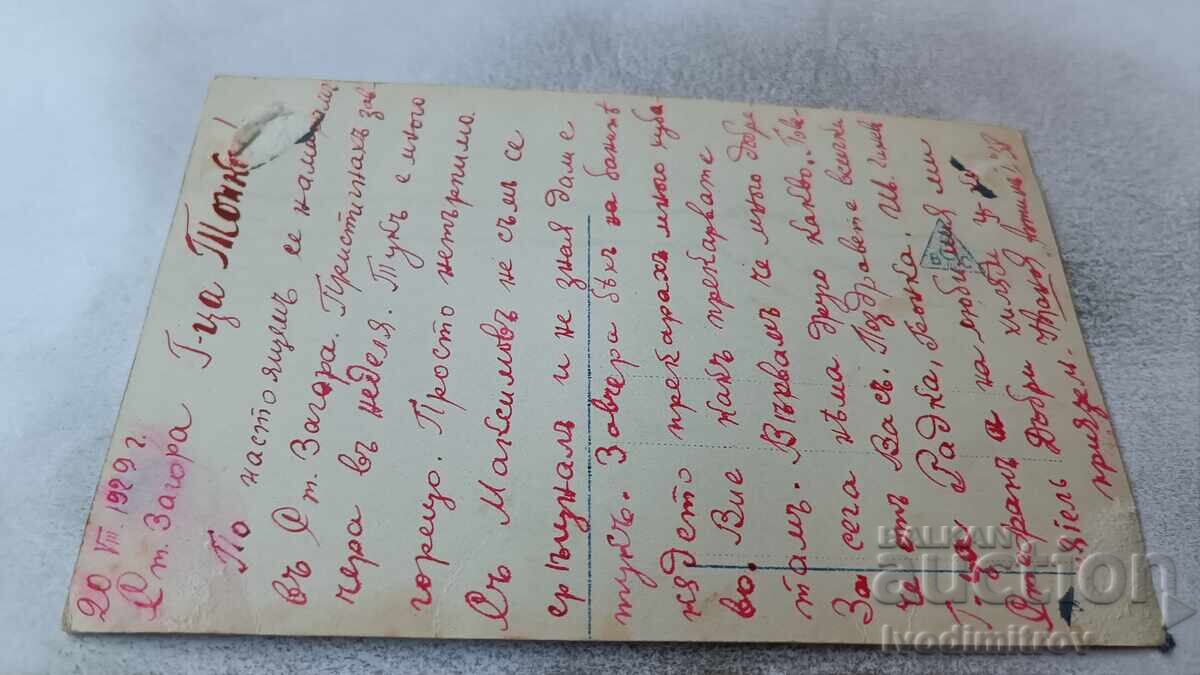 20 VIII 1929 г.
Ст. Загора
Г-ца Тонка!
По настоящемъ се намирамъ
въ Ст. Загора. Пристигнахъ зав
чера въ неделя. Тукъ е много
горещо. Просто нетърпимо.
Съ Максимовъ не съмъ се
срѣщналъ и не зная дали е
тукъ. Завчера бѣхъ на банитѣ
кѫдето прекарахъ много хуба
во. Вие какъ прекарвате
тамъ. Вѣрвамъ че много добре
За сега нѣма друго какво. Пове
че отъ Васъ. Поздравете всички
Радка, Генка,
Стефанъ а на любимия ми
Добри хиляди
приятель.
BALKAN
auction
ivodimitrov